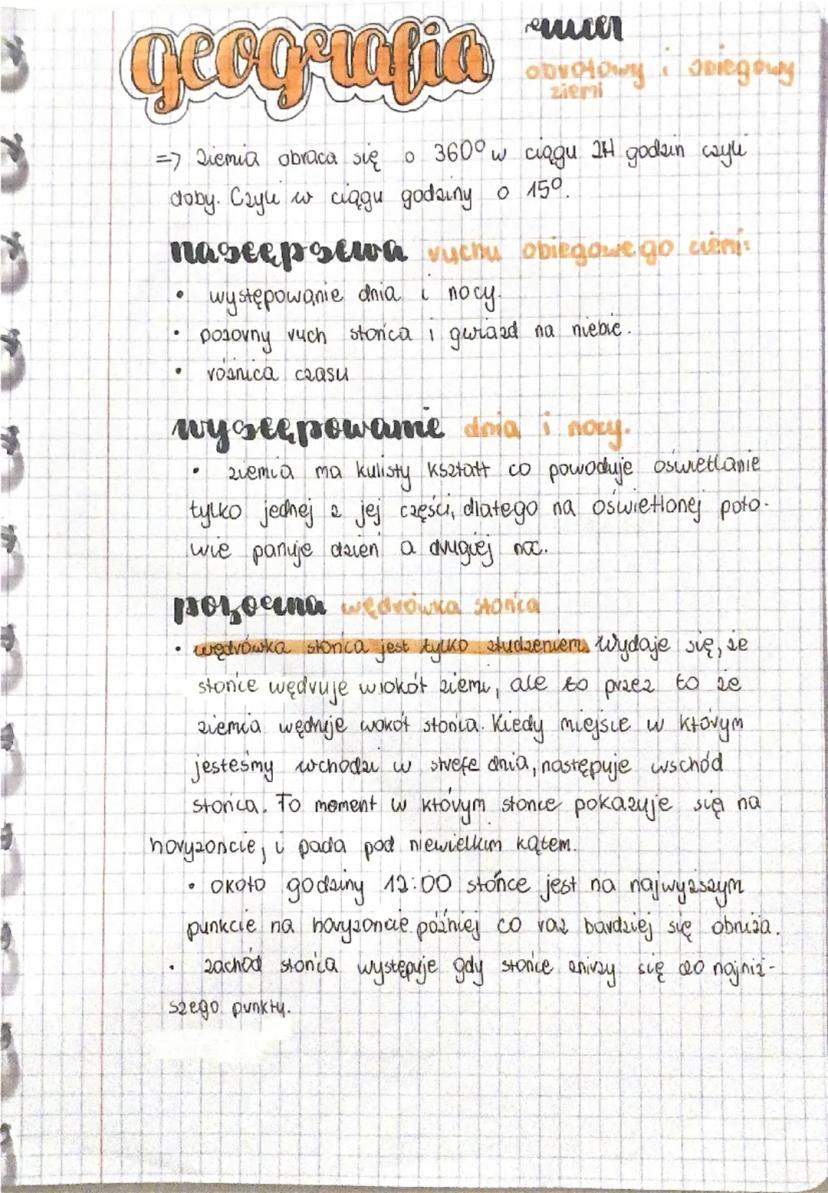 geografia
ruch
obrotowy i obiegowy
ziemi
=> ziemia obraca się o 360° w ciągu 24 godzin czyli
doby. Czyli w ciągu godziny o 15°.
następstwa ruchu obiegowego ziemi:
• występowanie dnia i nocy.
• pozorny ruch słońca i gwiazd na niebie.
• różnica czasu
występowanie dnia i nocy.
• ziemia ma kulisty kształt co powoduje oświetlanie
tylko jednej z jej części, dlatego na oświetlonej poło-
wie panuje dzień a drugiej noc.
pozorna wędrówka słońca
• wędrówka słońca jest tylko złudzeniem. Wydaje się, że
słońce wędruje wiokół ziemi, ale to przez to że
ziemia wędruje wokół słońca. Kiedy miejsce w którym
jesteśmy wchodzi w strefę dnia, następuje wschód
słońca. To moment w którym słońce pokazuje się na
horyzoncie, i pada pod niewielkim kątem.
• około godziny 12:00 słońce jest na najwyższym
punkcie na horyzoncie później co raz bardziej się obniża.
• zachód słońca występuje gdy słońce zniży się do najniż-
szego punktu.